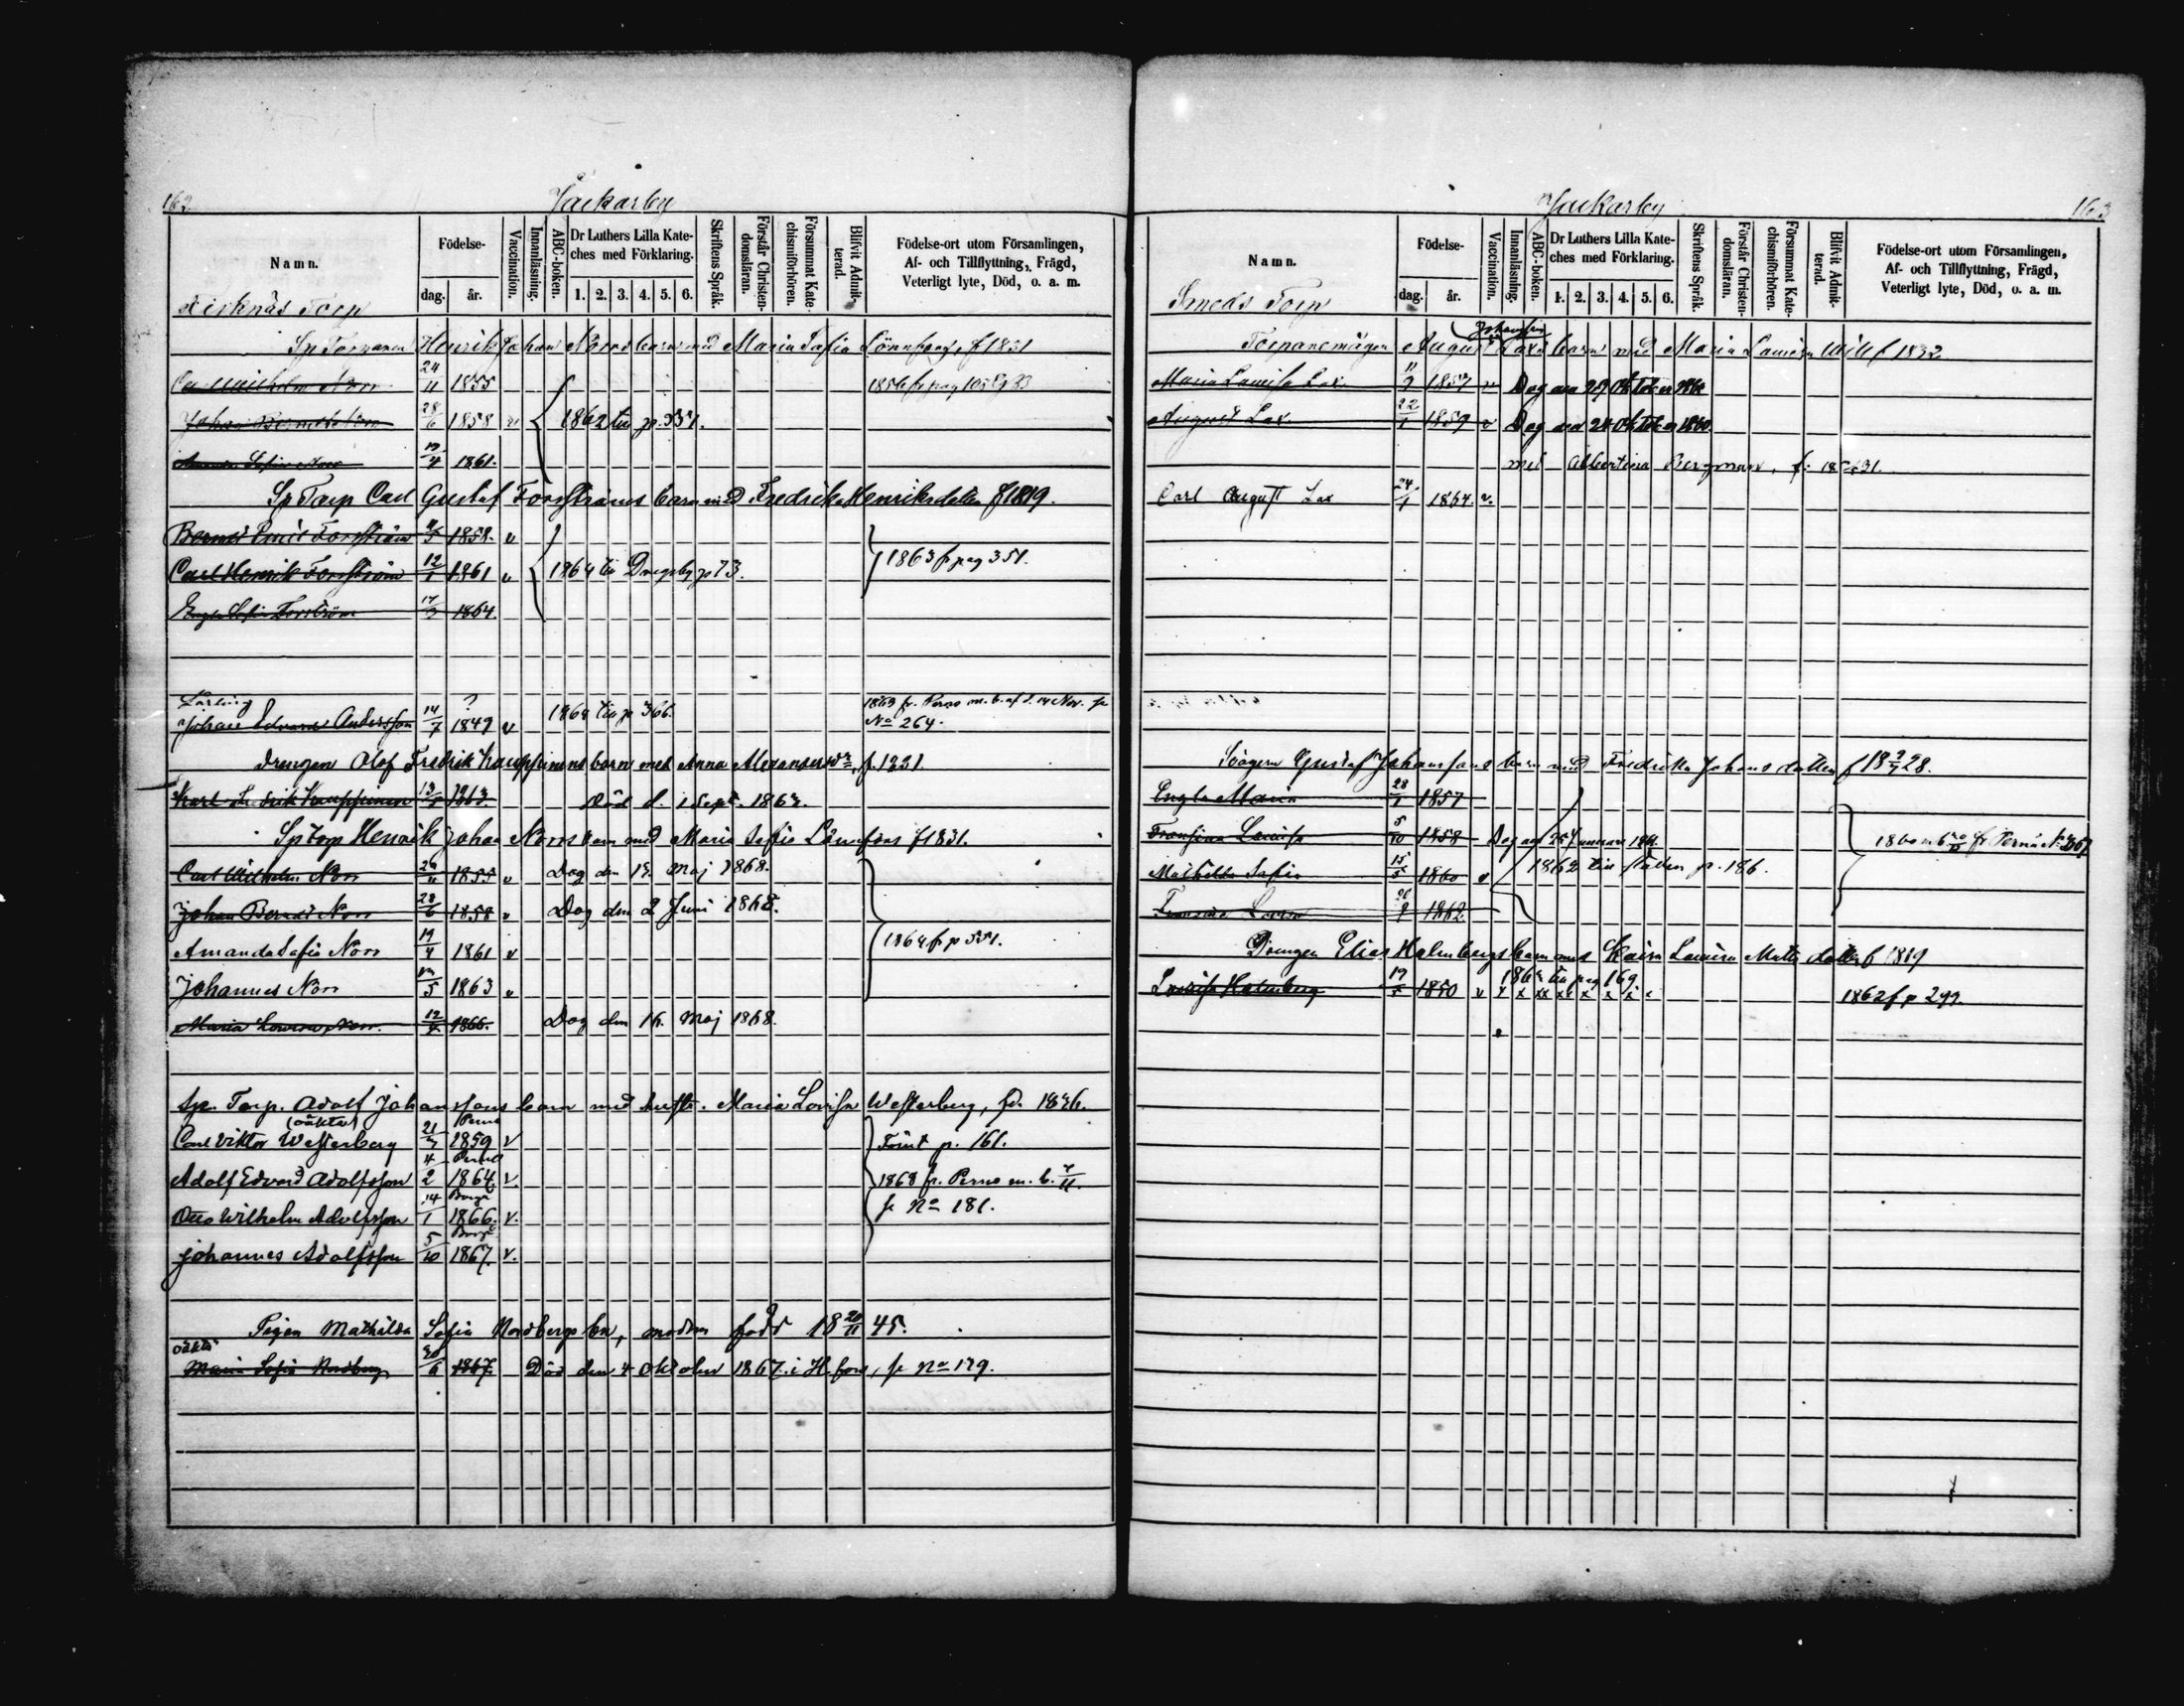 162
Jackarby
Namn.
Födelse-
dag.
år.
Vaccination.
Innanläsning.
ABC-boken.
Dr Luthers Lilla Kate-
ches med Förklaring.
1. 2. 3. 4. 5. 6.
Skriftens Språk.
Förstår Christen-
domsläran.
Försummat Kate-
chismiförhören.
Blifvit Admit-
terad.
Födelse-ort utom Församlingen,
Af- och Tillflyttning, Frägd,
Veterligt lyte, Död, o. a. m.
Torp
Henrik Johan Norrs barn med Maria Sofia Lönnfors, f 1831
Carl Wilhelm Norr 24/11 1855
Johan Berndt Norr 28/6 1858 v 1862 till p. 551.
Sofia Norr 19/4 1861.
Sp Torp Carl Gustaf Forsströms barn med Fredrika Henriksdotter f 1819.
Berndt Emil Forsström 1858. v
Carl Henrik Forsström 12/1 1861 v 1864 till p 73. 1863 fr pag 351.
Sofia Forsström 1864.
Lärling ?
Johan Edvard Andersson 14/7 1849 v 1864 till p 366. 1863 fr. Perno m. b. af d. 14 Nov. sr
No 264.
Drengen Olof Fredrik Kauppinens barn med Anna Alexandersdr, f. 1831.
Karl Fredrik Kauppinen 1863. Död d. 1 Sept. 1863.
Sp torp Henrik Johan Norrs barn med Maria Sofia Lönnfors f 1831.
Carl Wilhelm Norr 24/11 1855 v Dog den 19. Maj 1868.
Johan Berndt Norr 28/6 1858 v Dog den 2 Juni 1868.
Amanda Sofia Norr 19/4 1861 v 1864 fr p 551.
Johannes Norr 1863 v
Maria Lovisa Norr. 1866. Dog den 16. Maj 1868.
Sp. Torp. Adolf Johanssons barn med hustr. Maria Lovisa Westerberg, fd. 1836.
(oäkta) Perno
Carl Viktor Westerberg 21/7 1859 v Förut p. 161.
Perno
Adolf Edvard Adolfsson 4/2 1864. v. 1868 fr. Perno m. b. 7/11.
Borgå
Otto Wilhelm Adolfsson 14/1 1866. v. sr No 181.
Borgå
Johannes Adolfsson 5/10 1867. v.
Pigan Mathilda Sofia Nordbergs bn, modren född 18 20/11 45.
oäkta
Maria Sofia Nordberg 30/6 1867. Död den 4 Oktober 1867. i H. fors, sr No 179.
163
Jackarby
Namn.
Födelse-
dag.
år.
Vaccination.
Innanläsning.
ABC-boken.
Dr Luthers Lilla Kate-
ches med Förklaring.
1. 2. 3. 4. 5. 6.
Skriftens Språk.
Förstår Christen-
domsläran.
Försummat Kate-
chismiförhören.
Blifvit Admit-
terad.
Födelse-ort utom Församlingen,
Af- och Tillflyttning, Frägd,
Veterligt lyte, Död, o. a. m.
Smeds Torp
Johansson
Torparemågen August Lax's barn med Maria Lovisa f 1832
Maria Lovisa Lax 11/9 1857 v Dog den 29 Oktober 1860
August Lax 22/1 1859 v Dog den 24 Oktober 1860
med Albertina Bergman, f. 1831.
Carl August Lax 24/1 1864. v.
Gustaf Johanssons barn med Fredrika Johansdotter f 18 28.
Engla Maria 28/1 1857
Fransina Lovisa 5/10 1858 Dog den 25 Januari 1861.
Mathilda Sofia 15/5 1860 v 1862 till p. 186.
Lovisa 1862
Drengen Elias Holmbergs barn med Kaisa Lovisa Mattsdotter f 1819
Lovisa Holmberg 19/5 1850 v till pag 169. 1862 f p 299.